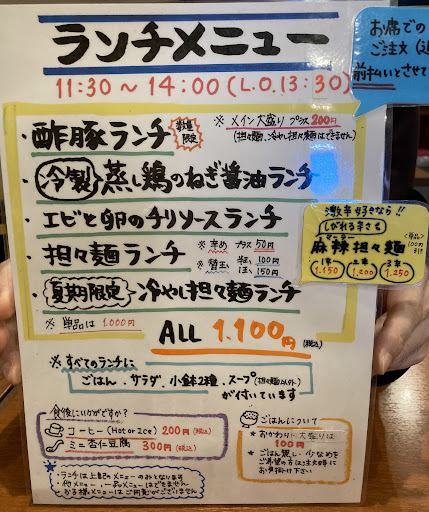 ランチメニュー
11:30～14:00(L.O.13:30)
お席での
ご注文
前払いとさせて
・酢豚ランチ 数量限定
※メイン大盛り プラス200円
(担々麺、冷やし担々麺はできません)
・冷製 蒸し鶏のねぎ醤油ランチ
・エビと卵のチリソースランチ
・担々麺ランチ
※辛め プラス50円
※替玉 100円
150円
・夏期限定 冷やし担々麺ランチ
※単品は1.000円
激辛好きなら!!
しびれる辛さを
マーラー
麻辣担々麺
<単品>
100円引き
1辛 2辛 3辛
1.150 1.200 1.250
ALL 1.100円(税込)
※すべてのランチに
ごはん、サラダ、小鉢2種、スープ(担々麺以外)
が付いています
食後にいかがですか?
コーヒー(Hot or Ice) 200円(税込)
ミニ杏仁豆腐 300円(税込)
ごはんについて
☆おかわり・大盛りは
100円
☆ごはん無し・少なめを
ご希望の方は注文時に
お声掛け下さい
・ランチは上記のメニューのみとなります
・他メニュー、一品メニューはできません